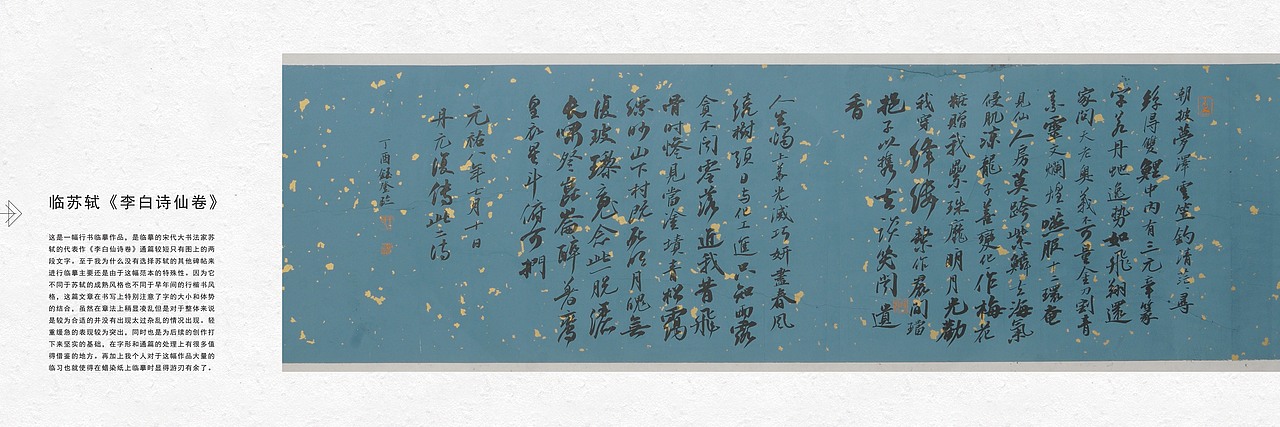 临苏轼《李白诗仙卷》
这是一幅行书临摹作品，是临摹的宋代大书法家苏
轼的代表作《李白仙诗卷》通篇较短只有图上的两
段文字。至于我为什么没有选择苏轼的其他碑帖来
进行临摹主要还是由于这幅范本的特殊性。因为它
不同于苏轼的成熟风格也不同于早年间的行楷书风
格，这篇文章在书写上特别注意了字的大小和体势
的结合，虽然在章法上稍显凌乱但是对于整体来说
是较为合适的并没有出现太过杂乱的情况出现。轻
重缓急的表现较为突出，同时也是为后续的创作打
下来坚实的基础，在字形和通篇的处理上有很多值
得借鉴的地方。再加上我个人对于这幅作品大量的
临习也就使得在蜡染纸上临摹时显得游刃有余了。
朝披夢澤雲笠釣清茫尋
絲得雙鯉中內有三元章篆
字若丹虵逸勢如飛翔還
家問天老奥義不可量金刀割青
素靈文爛煌煌嚥服十二環奄
見仙人房莫跨紫鱗去海氣
侵肌凉龍子善變化作梅花
粧贈我纍纍珠靡靡明月光勸
我穿絳縷繫作裾間璫
挹子以携去談笑聞遺
香
人生燭上華光滅巧妍盡春風
繞樹頭日與化工進只知雨露
貪不聞零落近我昔飛
骨時慘見當塗墳青松靄
朝霞
縹眇山下村既死明月魄無
復玻瓈魂念此一脱灑
長嘯登崑崙醉著鸞
皇衣星斗俯可捫
元祐八年七月十日
丹元復傳此二詩